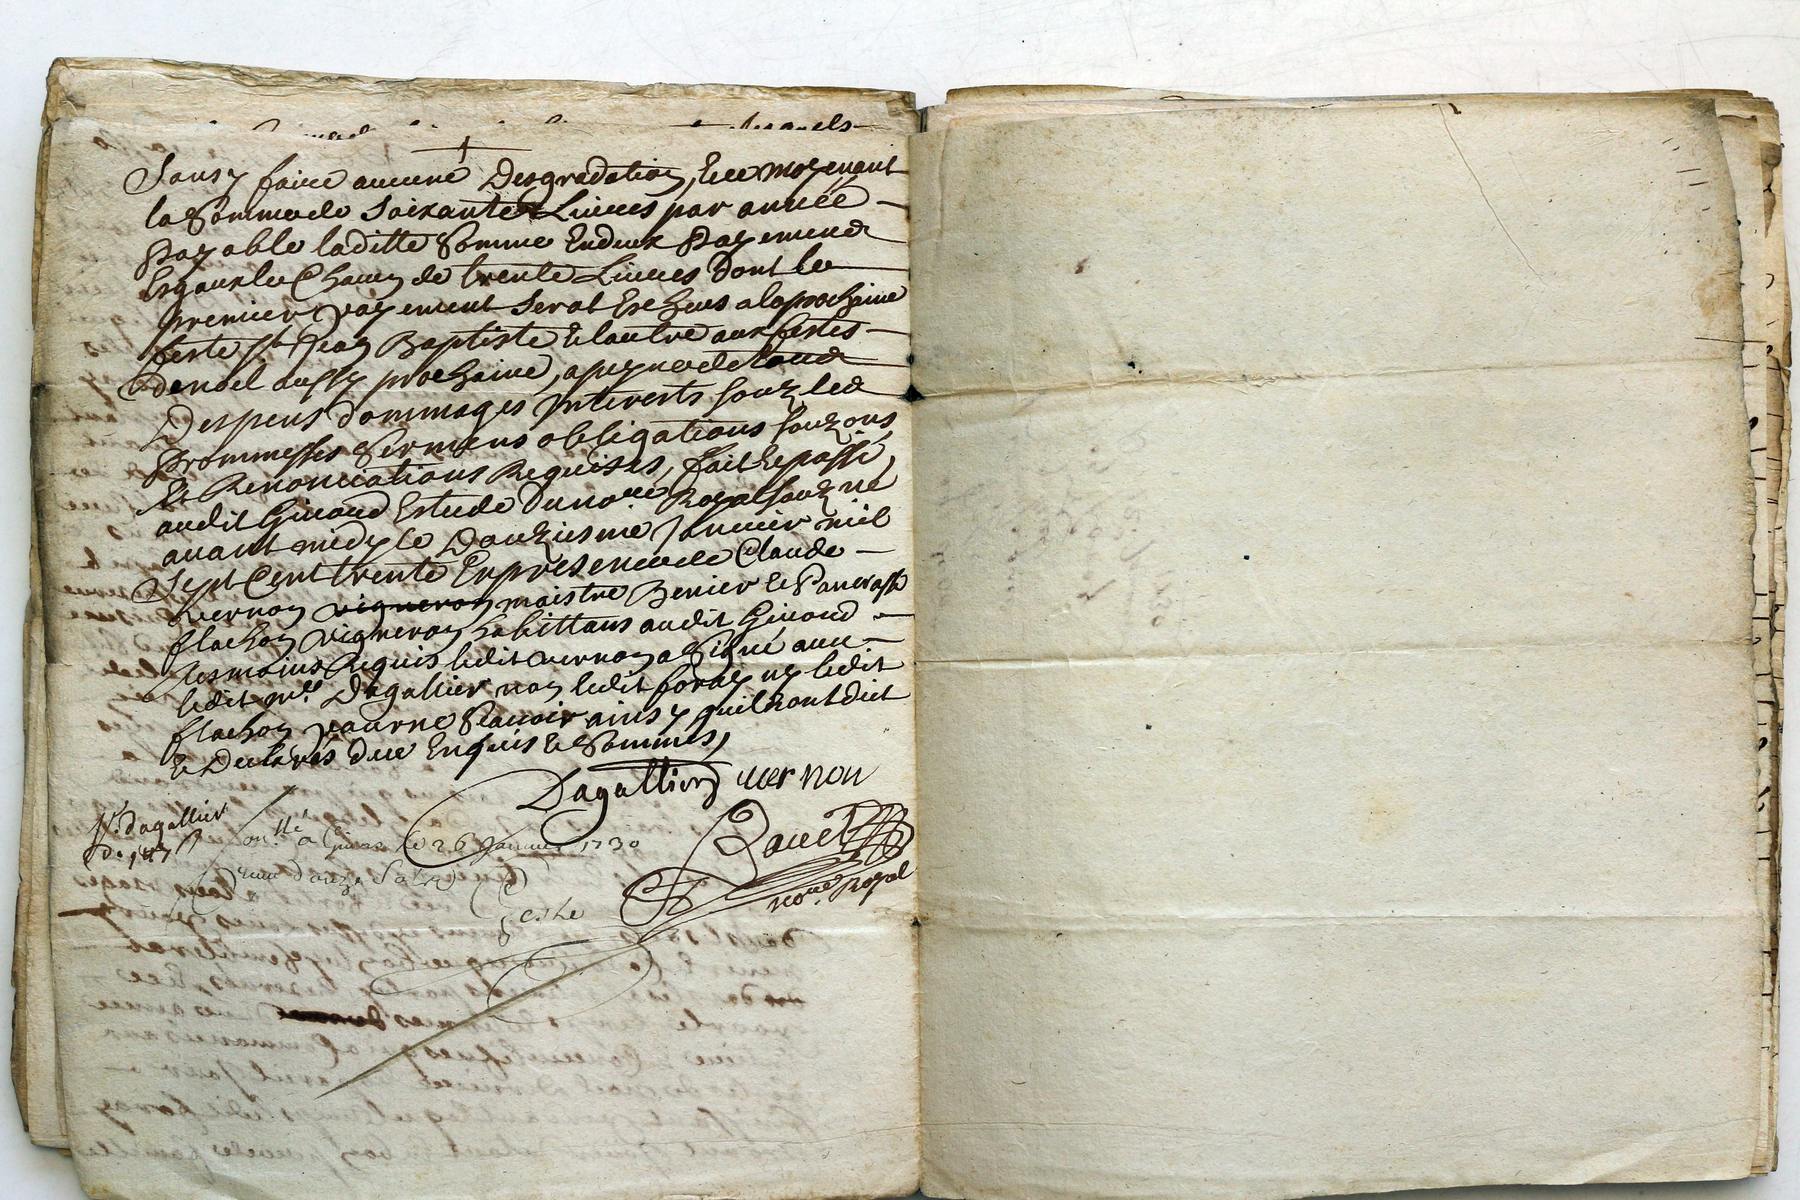 Sansy faire aucune Desgradation, Et ce moyenant
la Somme de Soixante Liures par année
payable laditte Somme En deux payement
Esgaux de Chacun de trente Liures Dont le
premier payement Serat Escheus a la prochaine
feste St Jean Baptiste Et lautre aux festes
de noel aussy prochaine, a peyne de tous
Despens dommages Interests souz les
Prommesses Sermens obligations souzons
Et Renonciations Requises, fait Et passé
audit Giuord Estude du nore. Royal souzné
auant midy le Douziesme Januier mil
Sept Cent trente En presence de Claude
vernon vigneron maistre Benier Et Pancrasse
flachon vigneron habittans audit Giuord
tesmoins Requis ledit vernon a Signé auec
ledit mre. Dagallier non ledit foray ny ledit
flachon pour ne Scauoir ainsy quil ont dict
Et Declarés de ce Enquis Et Sommes,
Dagallier vernon
Sr. dagallier
a Giuors le 26 Januier 1730
Receu douze Sols
Bouet
nore. Royal